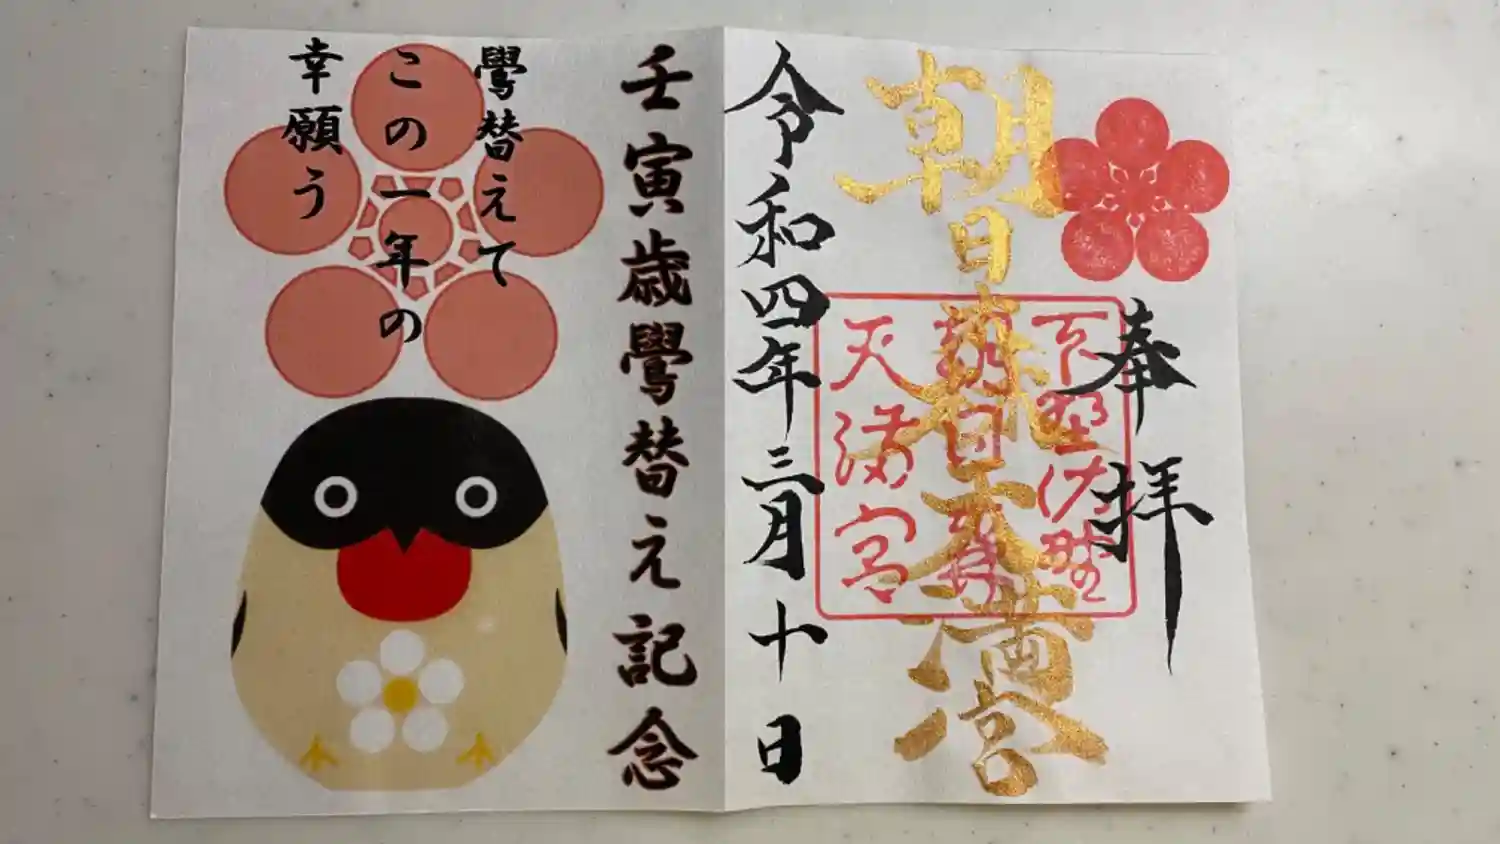 奉拝
朝日森天満宮
朝日森
天満宮
令和四年三月十日
壬寅歳鷽替え記念
鷽替えて
この一年の
幸願う